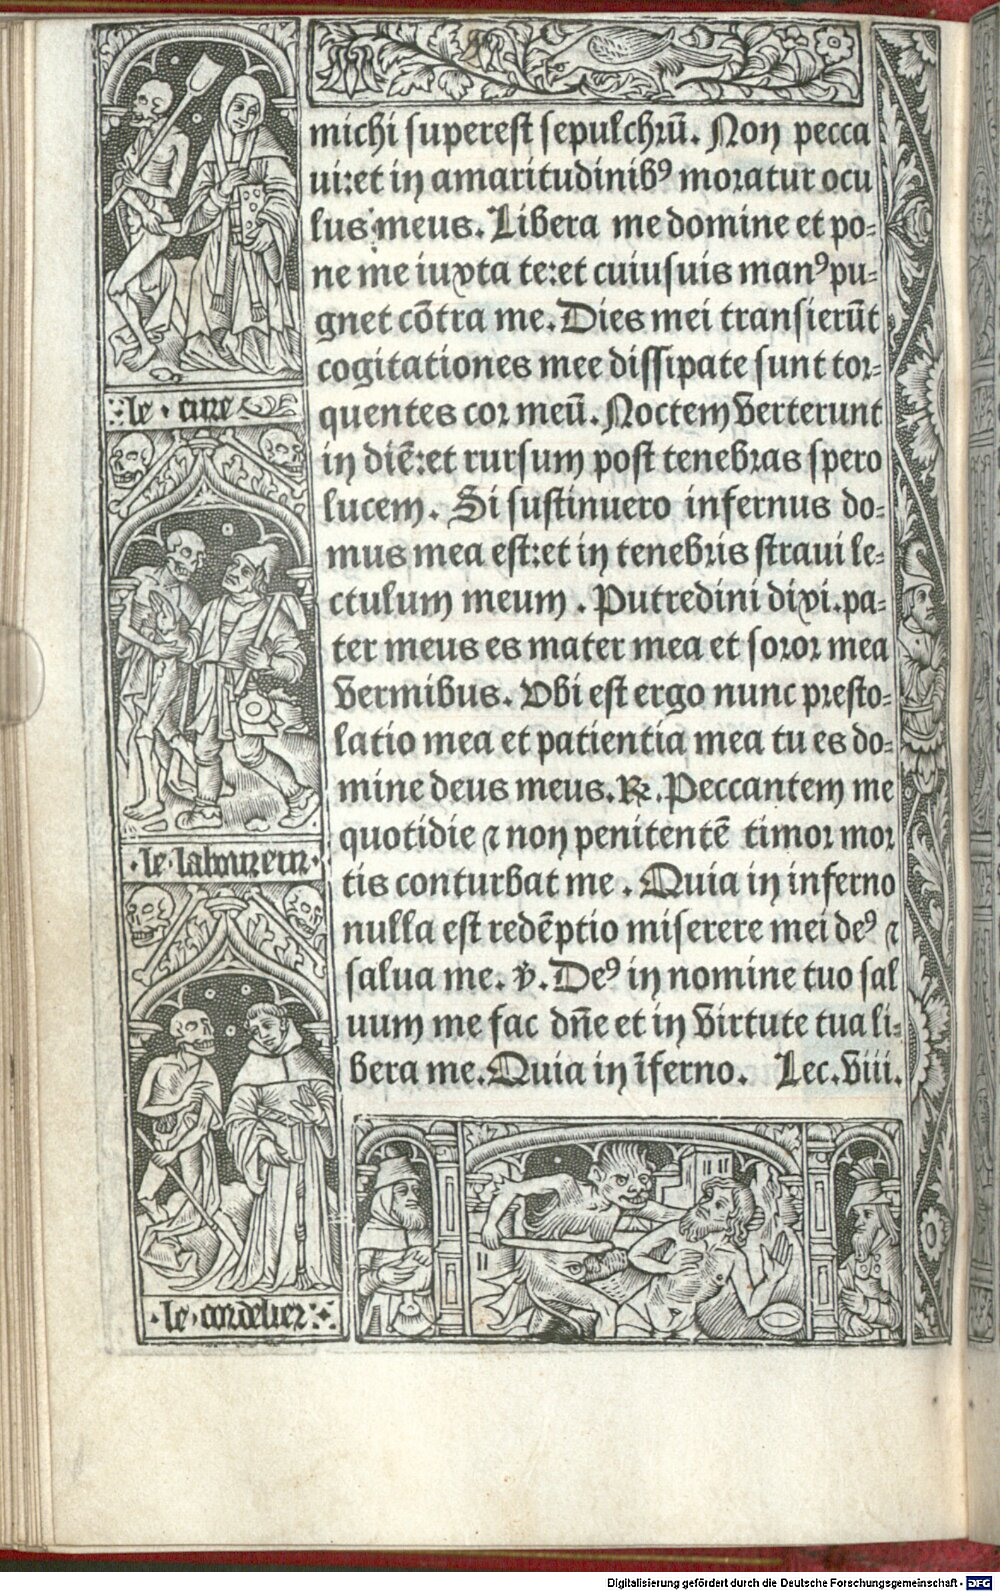 michi superest sepulchrū. Non pecca
ui:et in amaritudinibꝰ moratur ocu
lus meus. Libera me domine et po-
ne me iuxta te:et cuiusuis manꝰ pu-
gnet cōtra me. Dies mei transierūt
cogitationes mee dissipate sunt tor-
quentes cor meū. Noctem verterunt
in diē:et rursum post tenebras spero
lucem. Si sustinuero infernus do-
mus mea est:et in tenebris straui le-
ctulum meum. Putredini dixi.pa-
ter meus es mater mea et soror mea
vermibus. Vbi est ergo nunc presto-
latio mea et patientia mea tu es do-
mine deus meus. ℟. Peccantem me
quotidie ⁊ non penitentē timor mor
tis conturbat me. Quia in inferno
nulla est redēptio miserere mei deꝰ ⁊
salua me. ℣. Deꝰ in nomine tuo sal
uum me fac dn̄e et in virtute tua li-
bera me. Quia in īferno. Lec. viii.
le cure
le laboureur
le cordelier
Digitalisierung gefördert durch die Deutsche Forschungsgemeinschaft - DFG